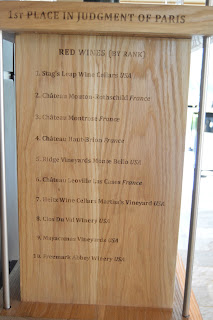 1st PLACE IN JUDGMENT OF PARIS
RED WINES (BY RANK)
1. Stag's Leap Wine Cellars USA
2. Château Mouton-Rothschild France
3. Château Montrose France
4. Château Haut-Brion France
5. Ridge Vineyards Monte Bello USA
6. Château Leoville Las Cases France
7. Heitz Wine Cellars Martha's Vineyard USA
8. Clos Du Val Winery USA
9. Mayacamas Vineyards USA
10. Freemark Abbey Winery USA